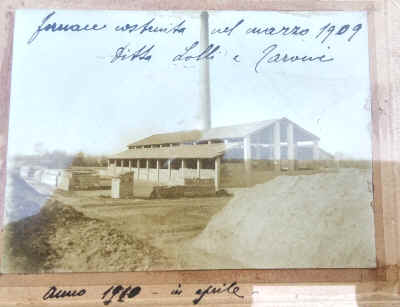 fornace costruita nel marzo 1909
Ditta Lolli e Taroni
Anno 1910 - in aprile